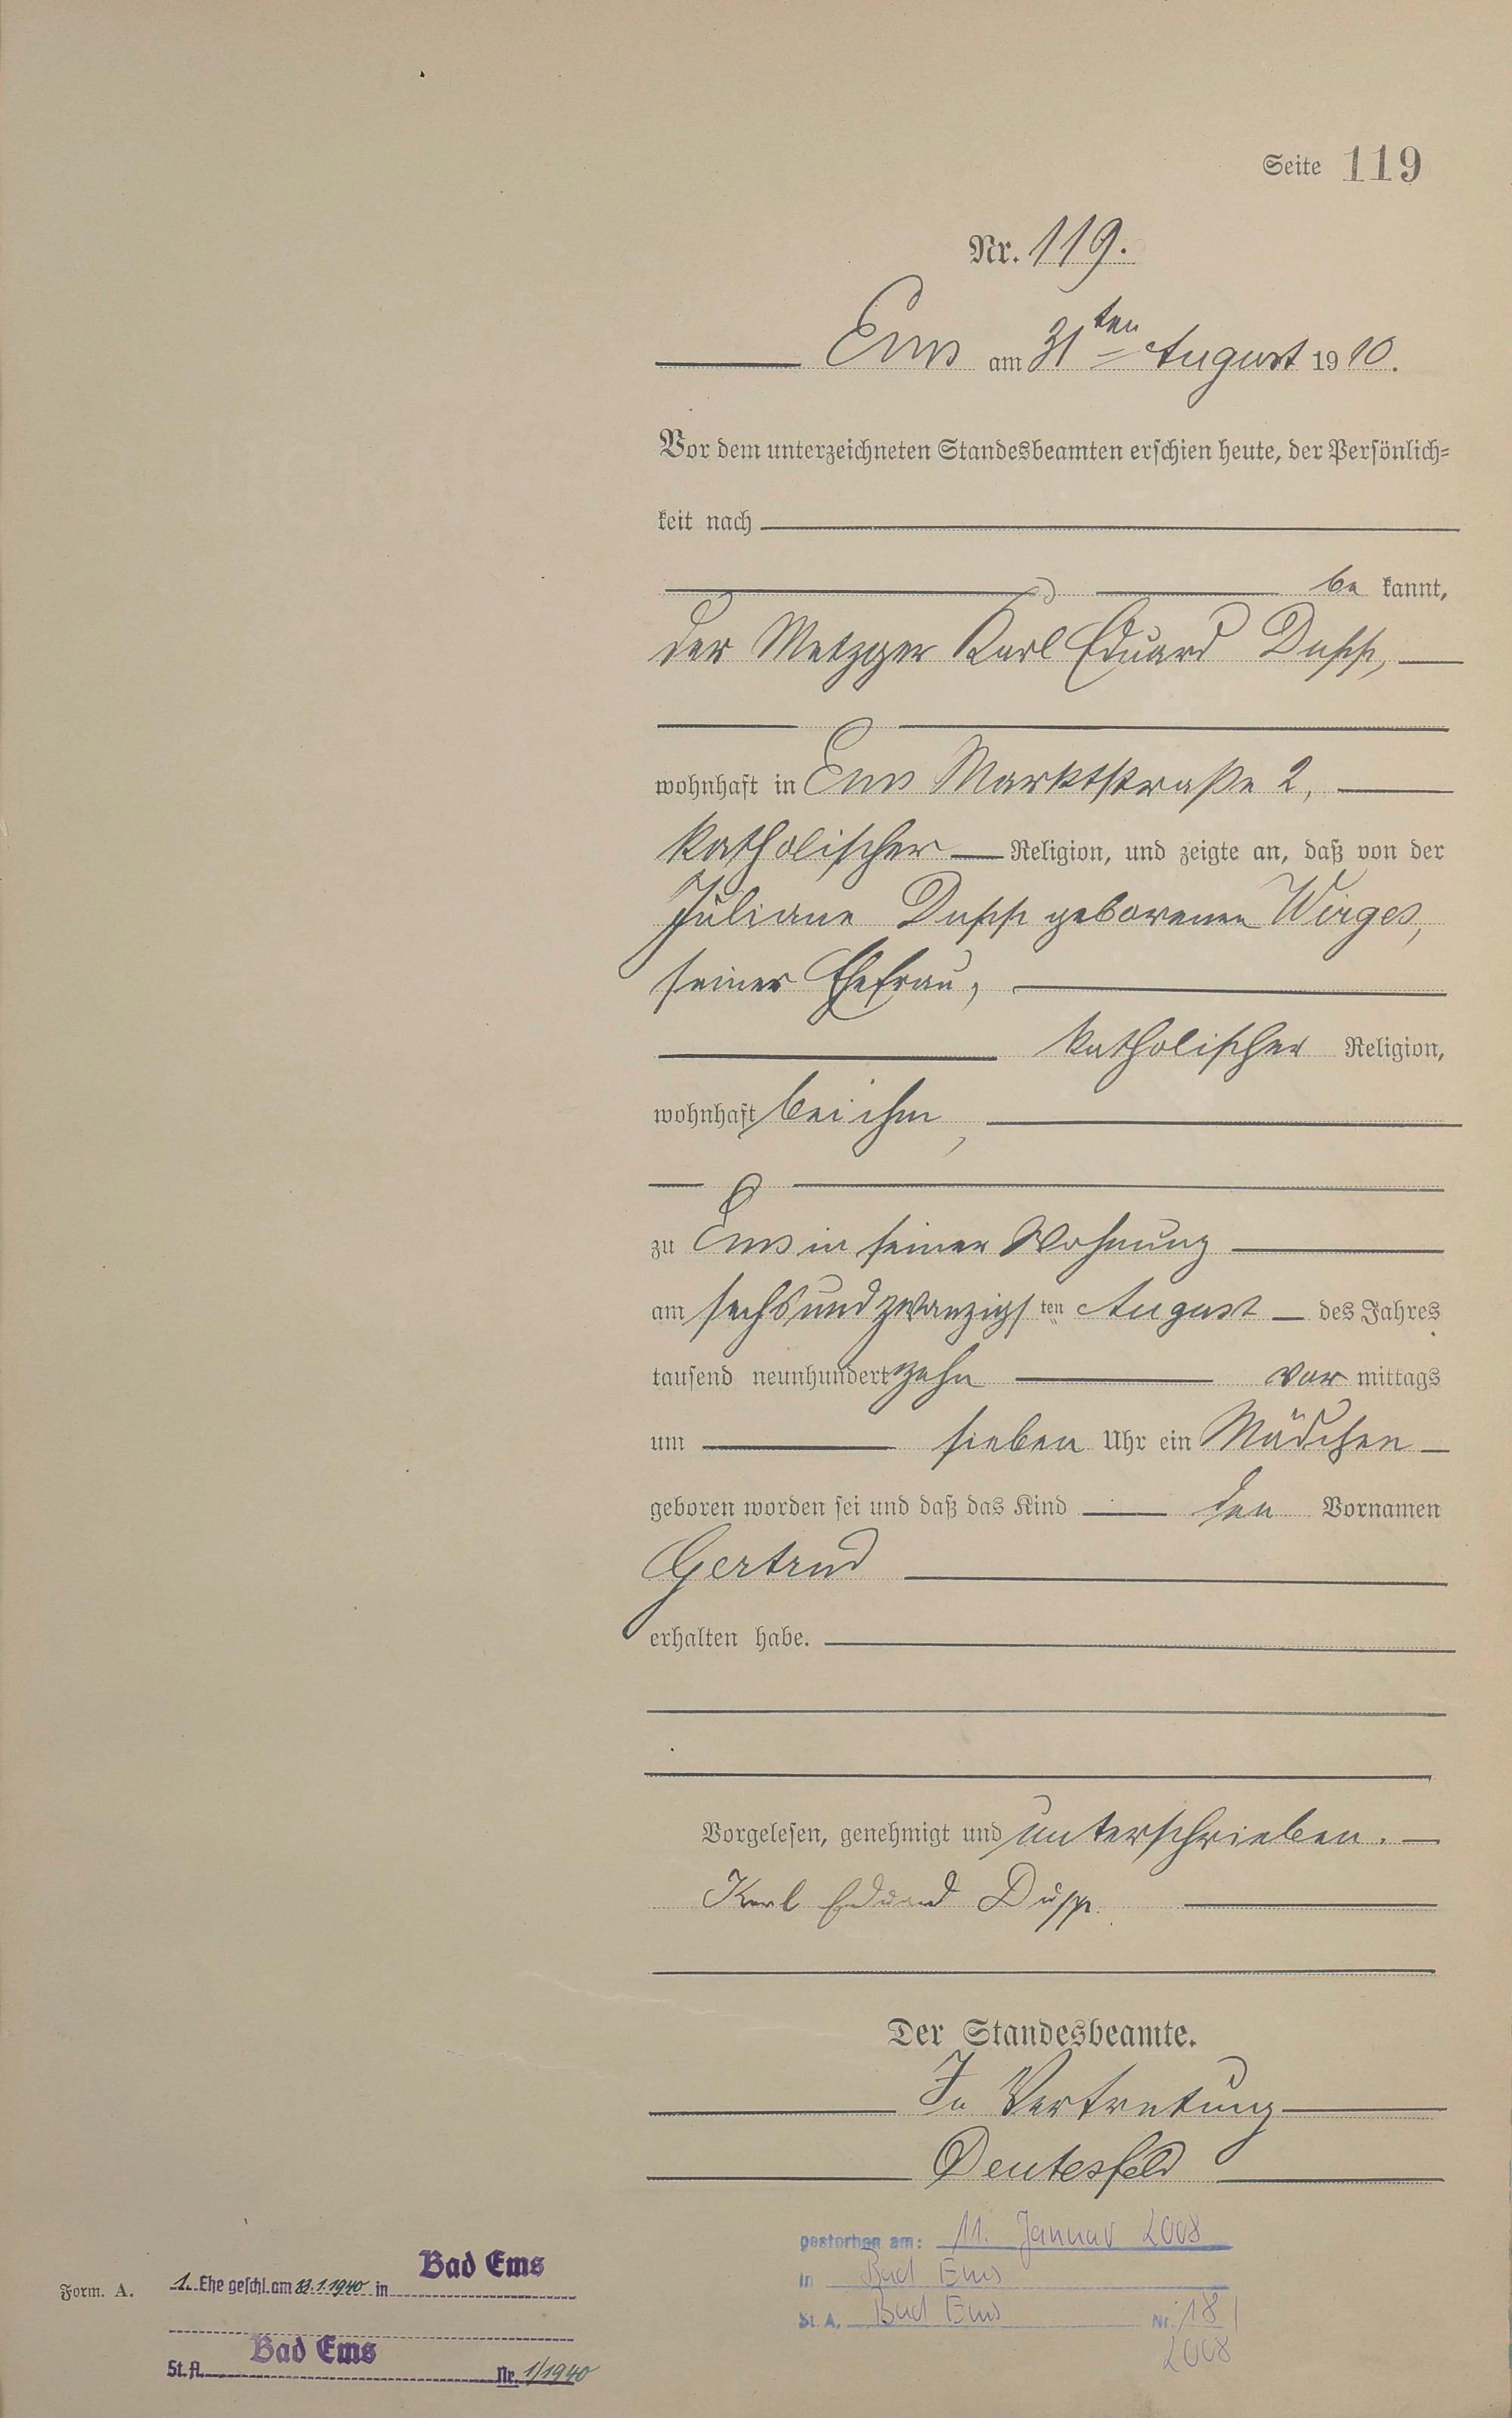 Seite 119
Nr. 119.
Ems am 31ten August 1910.
Vor dem unterzeichneten Standesbeamten erschien heute, der Persönlich=
keit nach
be kannt,
der Metzger Karl Eduard Dupp,
wohnhaft in Ems Marktstraße 2,
katholischer Religion, und zeigte an, daß von der
Juliane Dupp geborenen Wirges,
seiner Ehefrau,
katholischer Religion,
wohnhaft bei ihm,
zu Ems in seiner Wohnung
am sechsundzwanzigsten August des Jahres
tausend neunhundert zehn vor mittags
um sieben Uhr ein Mädchen
geboren worden sei und daß das Kind den Vornamen
Gertrud
erhalten habe.
Vorgelesen, genehmigt und unterschrieben.
Karl Eduard Dupp.
Der Standesbeamte.
In Vertretung
Deutesfeld
gestorben am: 11. Januar 2008
in Bad Ems
St. A. Bad Ems Nr. 18/
2008
Form. A. 1. Ehe geschl. am 13.1.1940 in Bad Ems
St. A. Bad Ems Nr. 1/1940